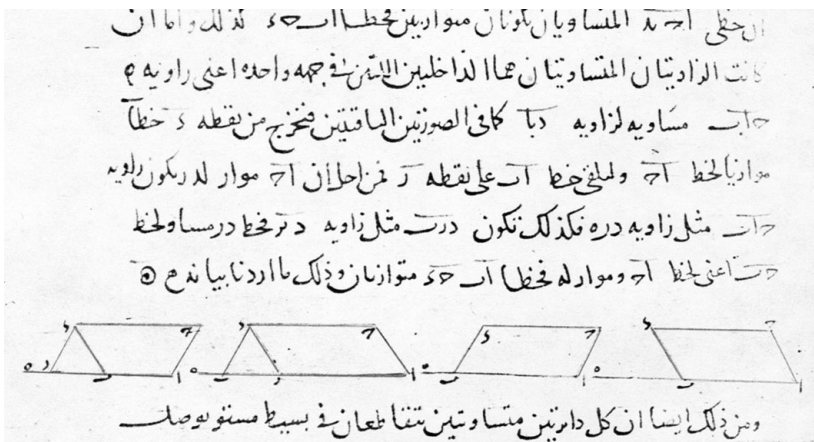 ان خطى اح ب‍د المتساويان يكونان متوازيين فخطا اب حد كذلك واما ان
كانت الزاويتان المتساويتان هما الداخليين اللتين في جهه واحده اعنى زاويه ه
حاب مساويه لزاويه دبا كما فى الصورتين الباقيتين فنخرج من نقطه د خطا
موازيا لخط اح وليلقى خط اب على نقطه ر فمن اجل ان اح مواز لدر يكون زاويه
حاب مثل زاويه دره فكذلك تكون درب مثل زاويه دبر فخط در مساو لخط
دب اعنى لخط اح ومواز له فخطا اب حد متوازيان وذلك ما اردنا بيانه
د ح د ح د ح د ح
ه ر ب ا ه ب ر ا ه ب ا ه ب ا
ومن ذلك ايضا ان كل دايرتين متساويتين تتقاطعان في بسيط مستو يوصل